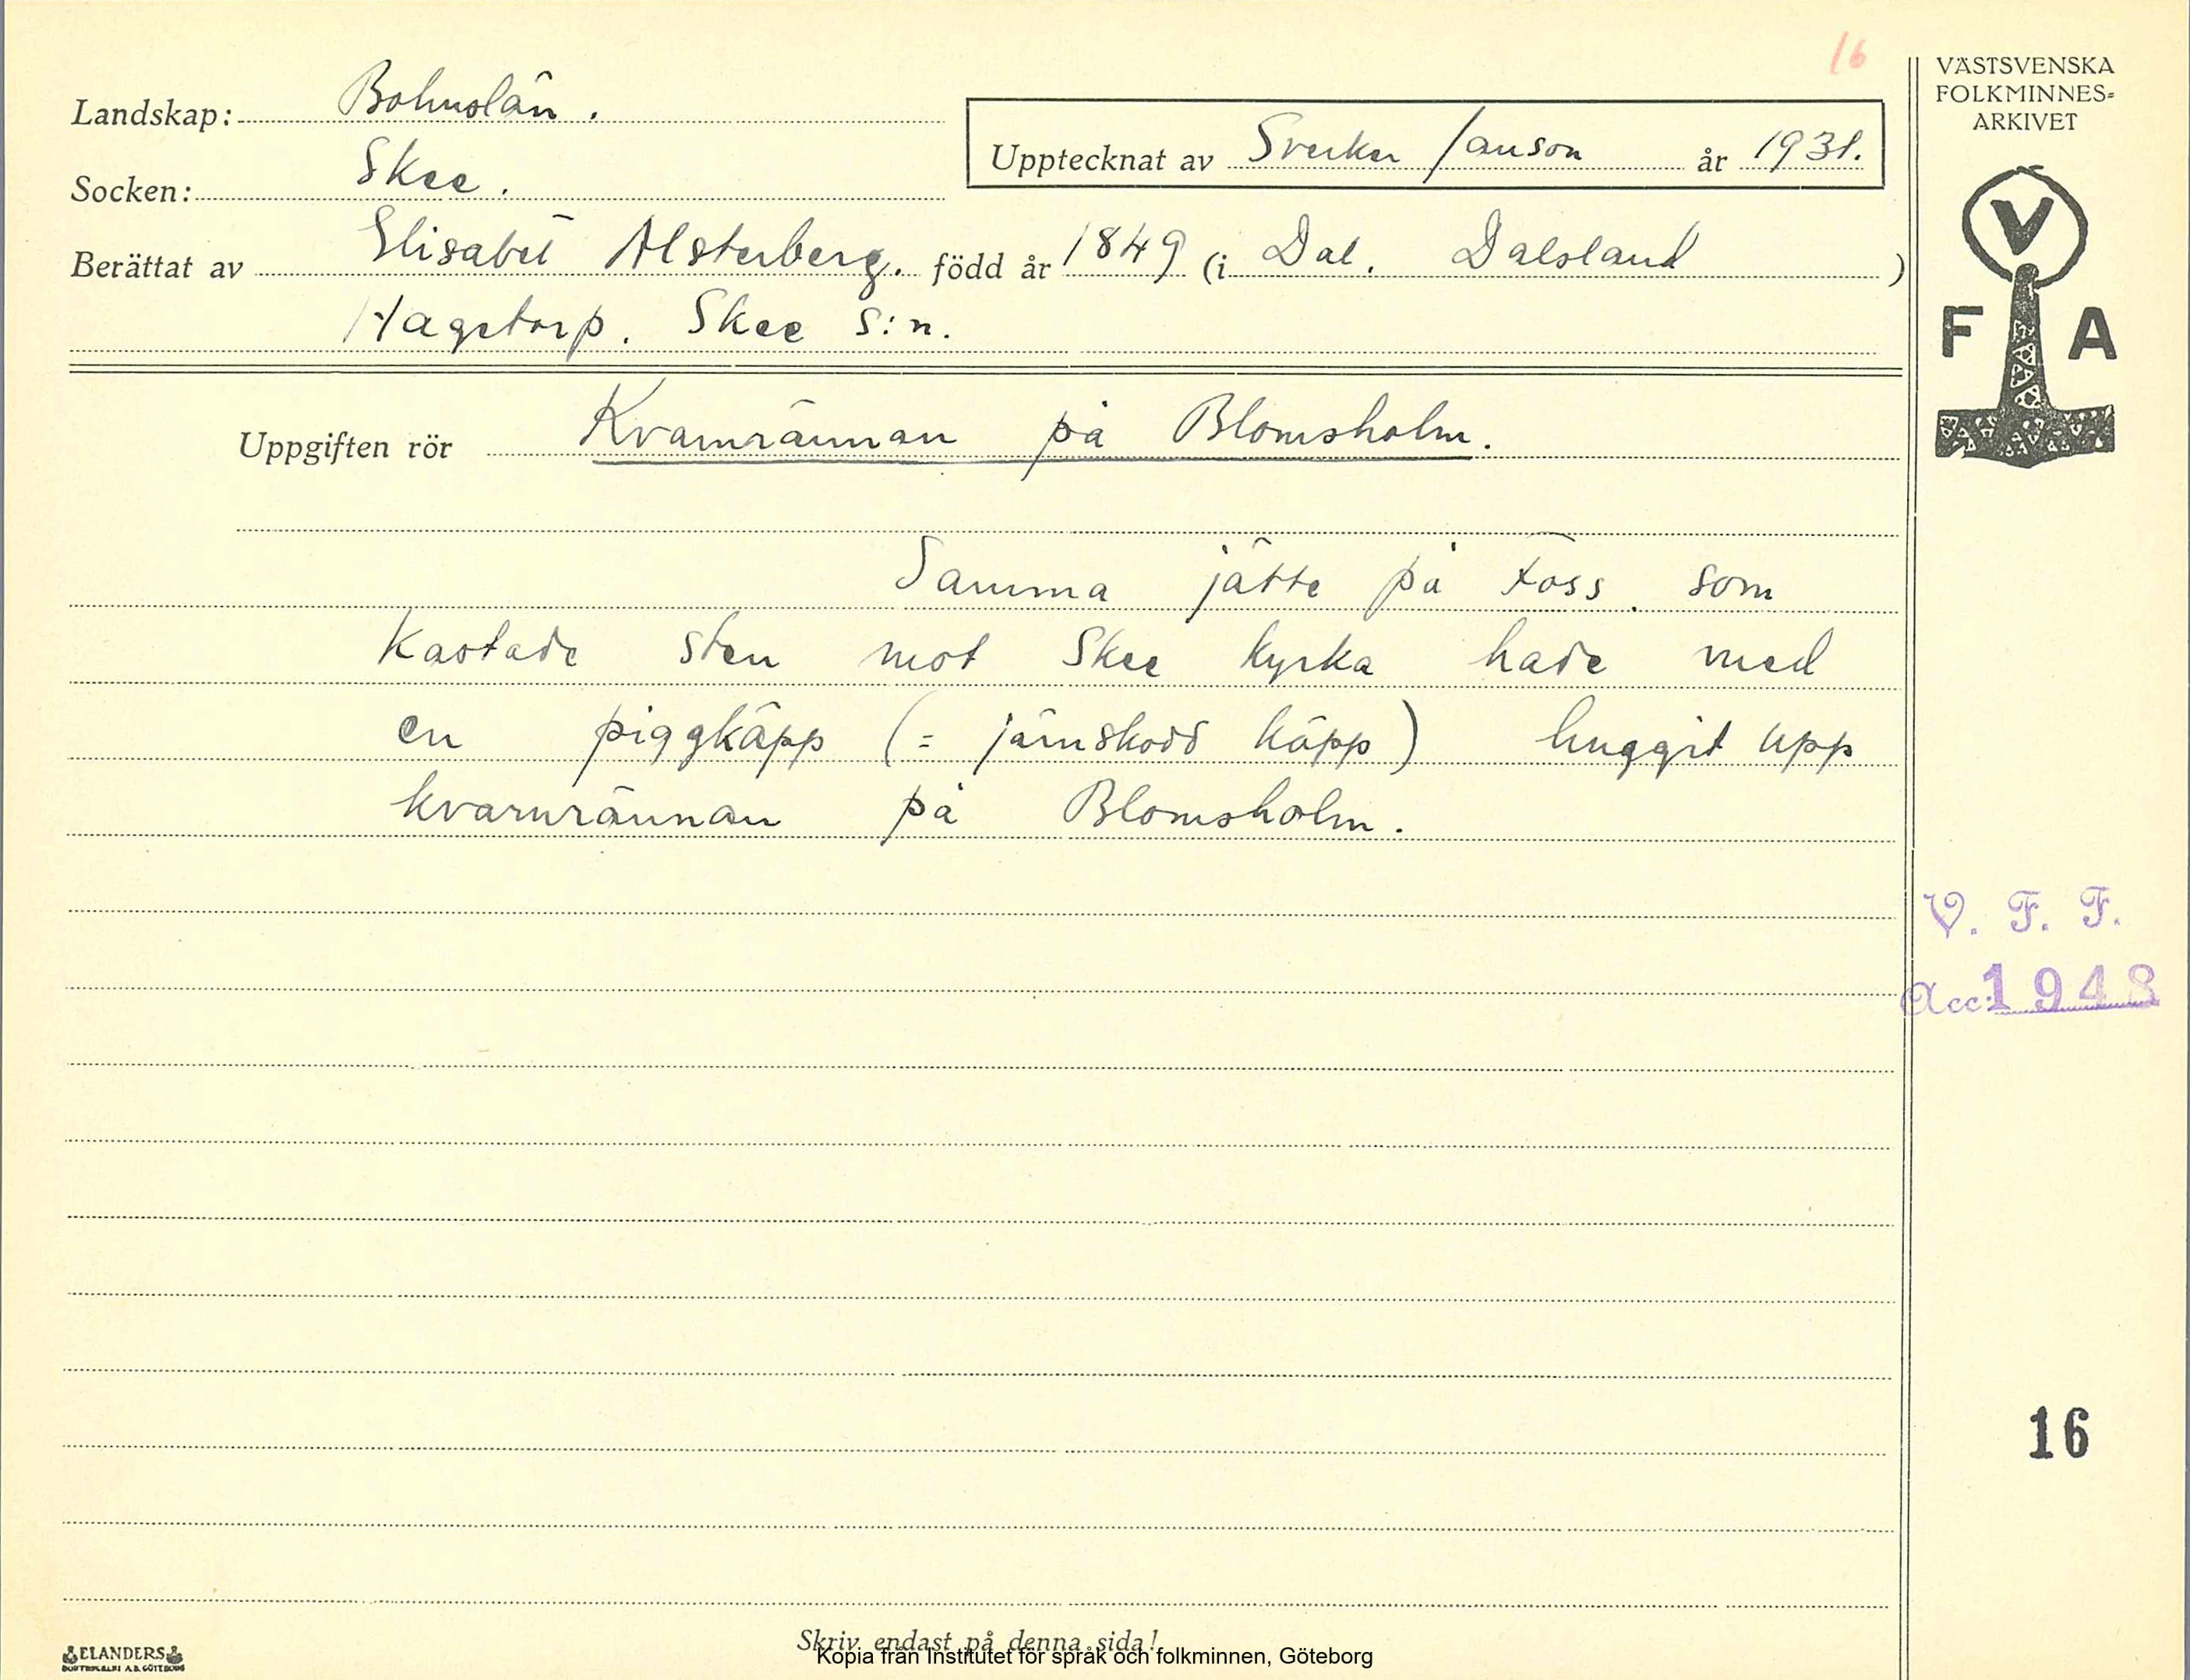 16
VÄSTSVENSKA
FOLKMINNES=
ARKIVET
Landskap: Bohuslän.
Upptecknat av Sverker Janson år 1931.
Socken: Skee.
Berättat av Elisabet Alsterberg. född år 1849 (i Dal. Dalsland )
Hagetorp. Skee s:n.
V
F A
Uppgiften rör Kvarnrännan på Blomsholm.
Samma jätte på Foss. som
kastade sten mot Skee kyrka hade med
en piggkäpp (= järnskodd käpp) huggit upp
kvarnrännan på Blomsholm.
V. F. F.
Acc: 1948
16
Skriv endast på denna sida!
Kopia från Institutet för språk och folkminnen, Göteborg
ELANDERS
A.B. GÖTEBORG